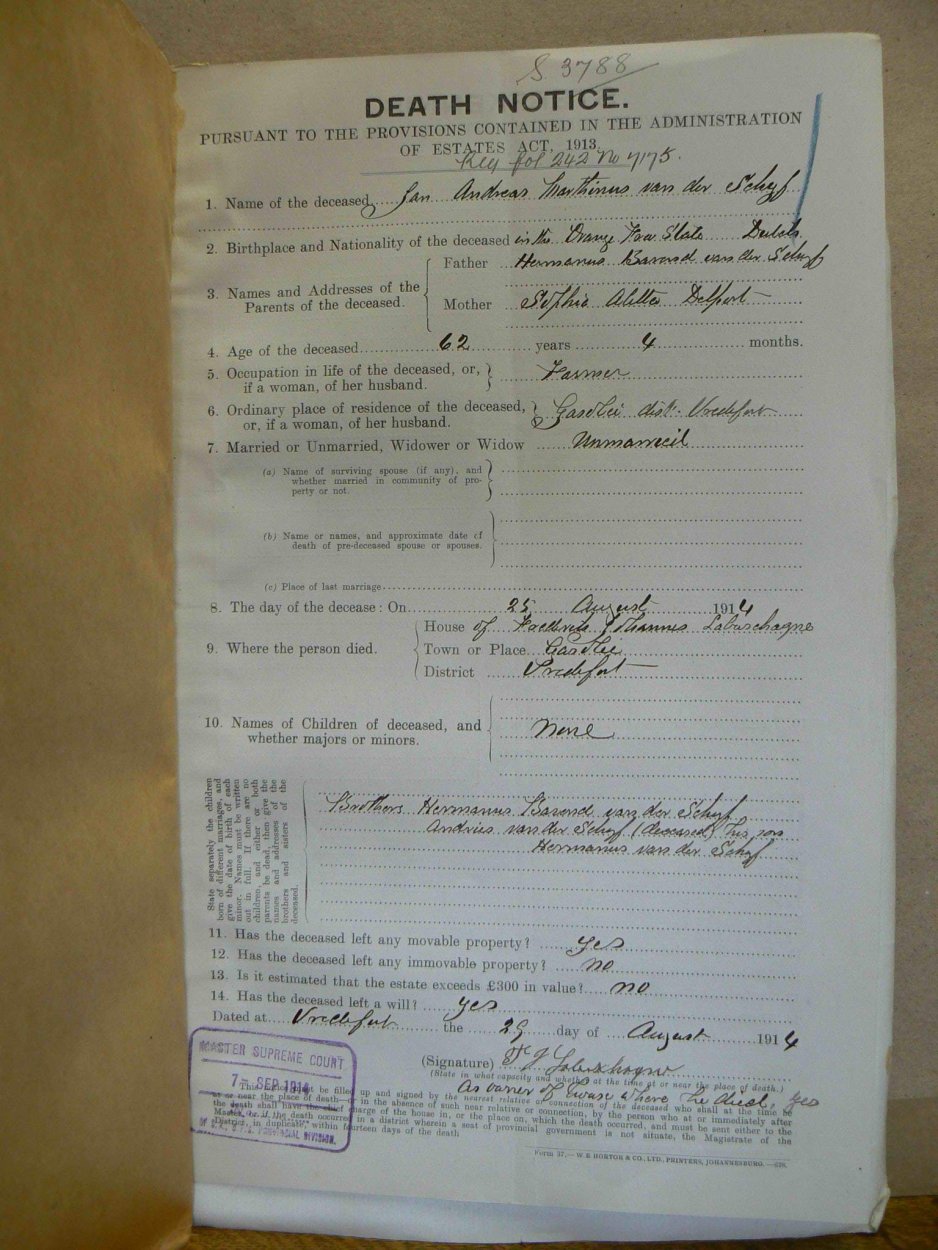 S 3788
DEATH NOTICE.
PURSUANT TO THE PROVISIONS CONTAINED IN THE ADMINISTRATION
OF ESTATES ACT, 1913.
Reg fol 242 No 7175.
1. Name of the deceased Jan Andreas Marthinus van der Schyf
2. Birthplace and Nationality of the deceased in the Orange Free State Dutch
3. Names and Addresses of the Parents of the deceased.
Father Hermanus Barend van der Schyf
Mother Sophia Aletta Delport
4. Age of the deceased 62 years 4 months.
5. Occupation in life of the deceased, or, if a woman, of her husband. Farmer
6. Ordinary place of residence of the deceased, or, if a woman, of her husband. dist. Vredefort
7. Married or Unmarried, Widower or Widow Unmarried
(a) Name of surviving spouse (if any), and
whether married in community of pro-
perty or not.
(b) Name or names, and approximate date of
death of pre-deceased spouse or spouses.
(c) Place of last marriage
8. The day of the decease: On 25 August 1914
9. Where the person died.
House of Frederik Johannes Labuschagne
Town or Place
District Vredefort
10. Names of Children of deceased, and
whether majors or minors.
None
State separately the children
born of different marriages, and
give the date of birth of each
minor. Names must be written
out in full. If there are no
children, and either or both
parents be dead, then give the
names and addresses of the
brothers and sisters of the
deceased.
Brothers Hermanus Barend van der Schyf
Andries van der Schyf (deceased) his son
Hermanus van der Schyf
11. Has the deceased left any movable property? yes
12. Has the deceased left any immovable property? no
13. Is it estimated that the estate exceeds £300 in value? no
14. Has the deceased left a will? yes
Dated at Vredefort the 29 day of August 1914
(Signature) F J Labuschagne
(State in what capacity and whether at the time at or near the place of death.)
As owner of house where he died, yes
This notice must be filled up and signed by the nearest relative or connection of the deceased who shall at the time be
at or near the place of death—or in the absence of such near relative or connection, by the person who at or immediately after
the death shall have the chief charge of the house in, or the place on, which the death occurred, and must be sent either to the
Master, or, if the death occurred in a district wherein a seat of provincial government is not situate, the Magistrate of the
District, in duplicate, within fourteen days of the death
MASTER SUPREME COURT
7 - SEP 1914
PROVINCIAL DIVISION.
Form 37,—W. E. HORTOR & CO., LTD., PRINTERS, JOHANNESBURG.